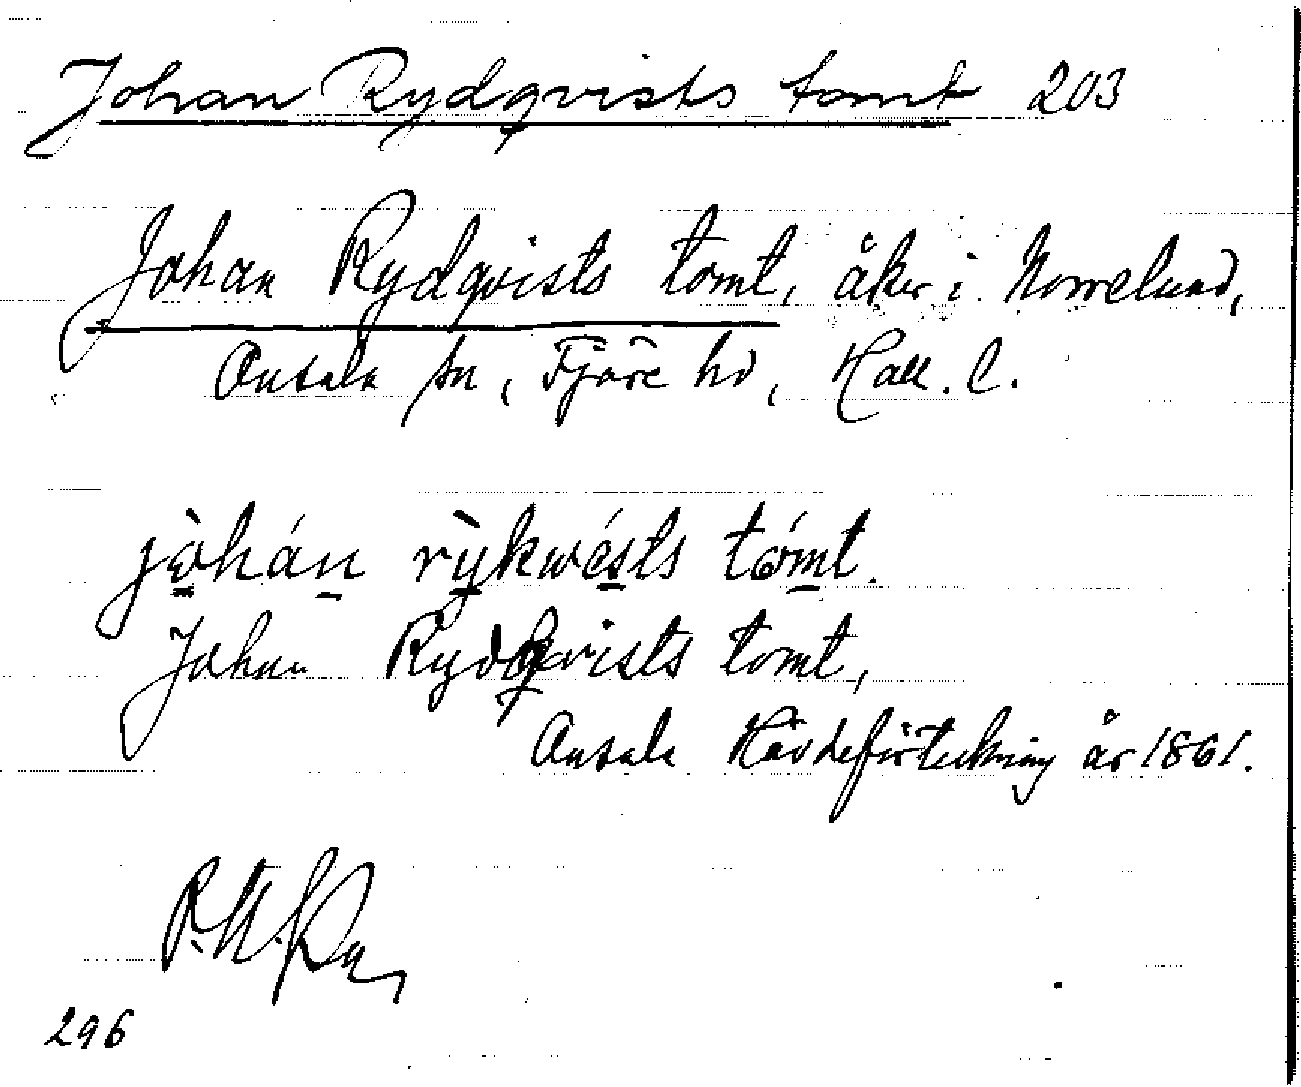 Johan Rydqvists tomt 203
Johan Rydqvists tomt, åker i Norrelund,
Onsala sn, Fjäre hd, Hall. l.
jòhán rỳkwésts tómt.
Johan Rydqvists tomt,
Onsala Hävdeförteckning år 1861.
296